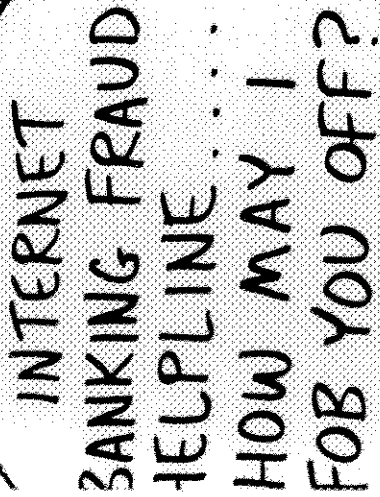 INTERNET
BANKING FRAUD
HELPLINE....
HOW MAY I
FOB YOU OFF?